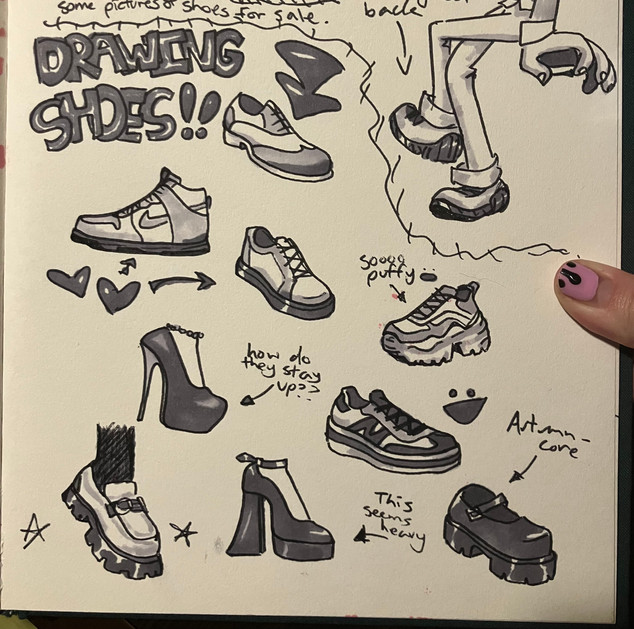 some pictures of shoes for sale.
back
DRAWING
SHOES!!
soooo
puffy
how do
they stay
up??
N
Autumn-
core
This
seems
heavy